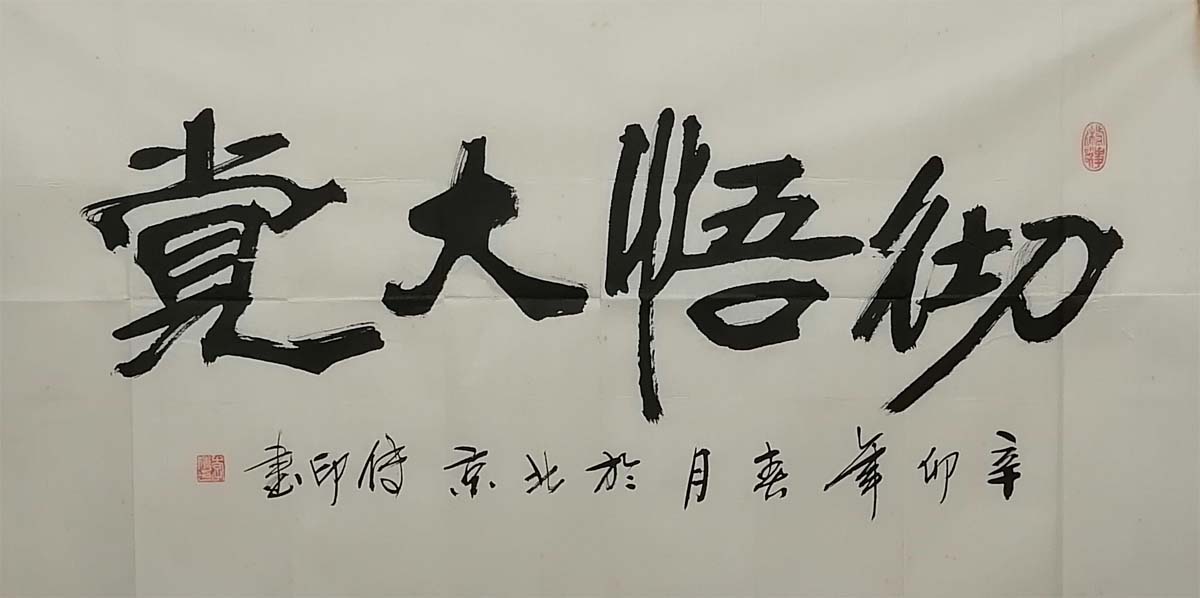 彻悟大觉
辛卯年春月於北京傅印书